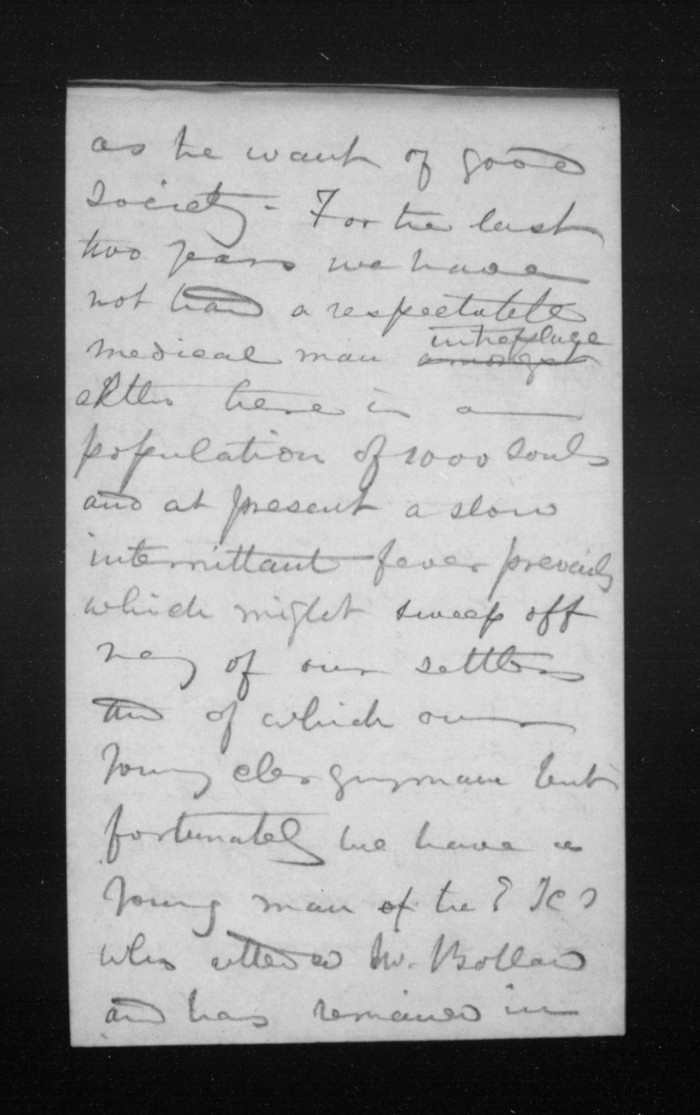 as the want of good
society - For the last
two years we have
not had a respectable
medical man in the place
amongst
altho there is a
population of 1000 souls
and at present a slow
intermittant fever prevails
which might sweep off
many of our settlers
and of which our
young clergyman but
fortunately we have a
young man of the
who attended Mr.
and has remained in